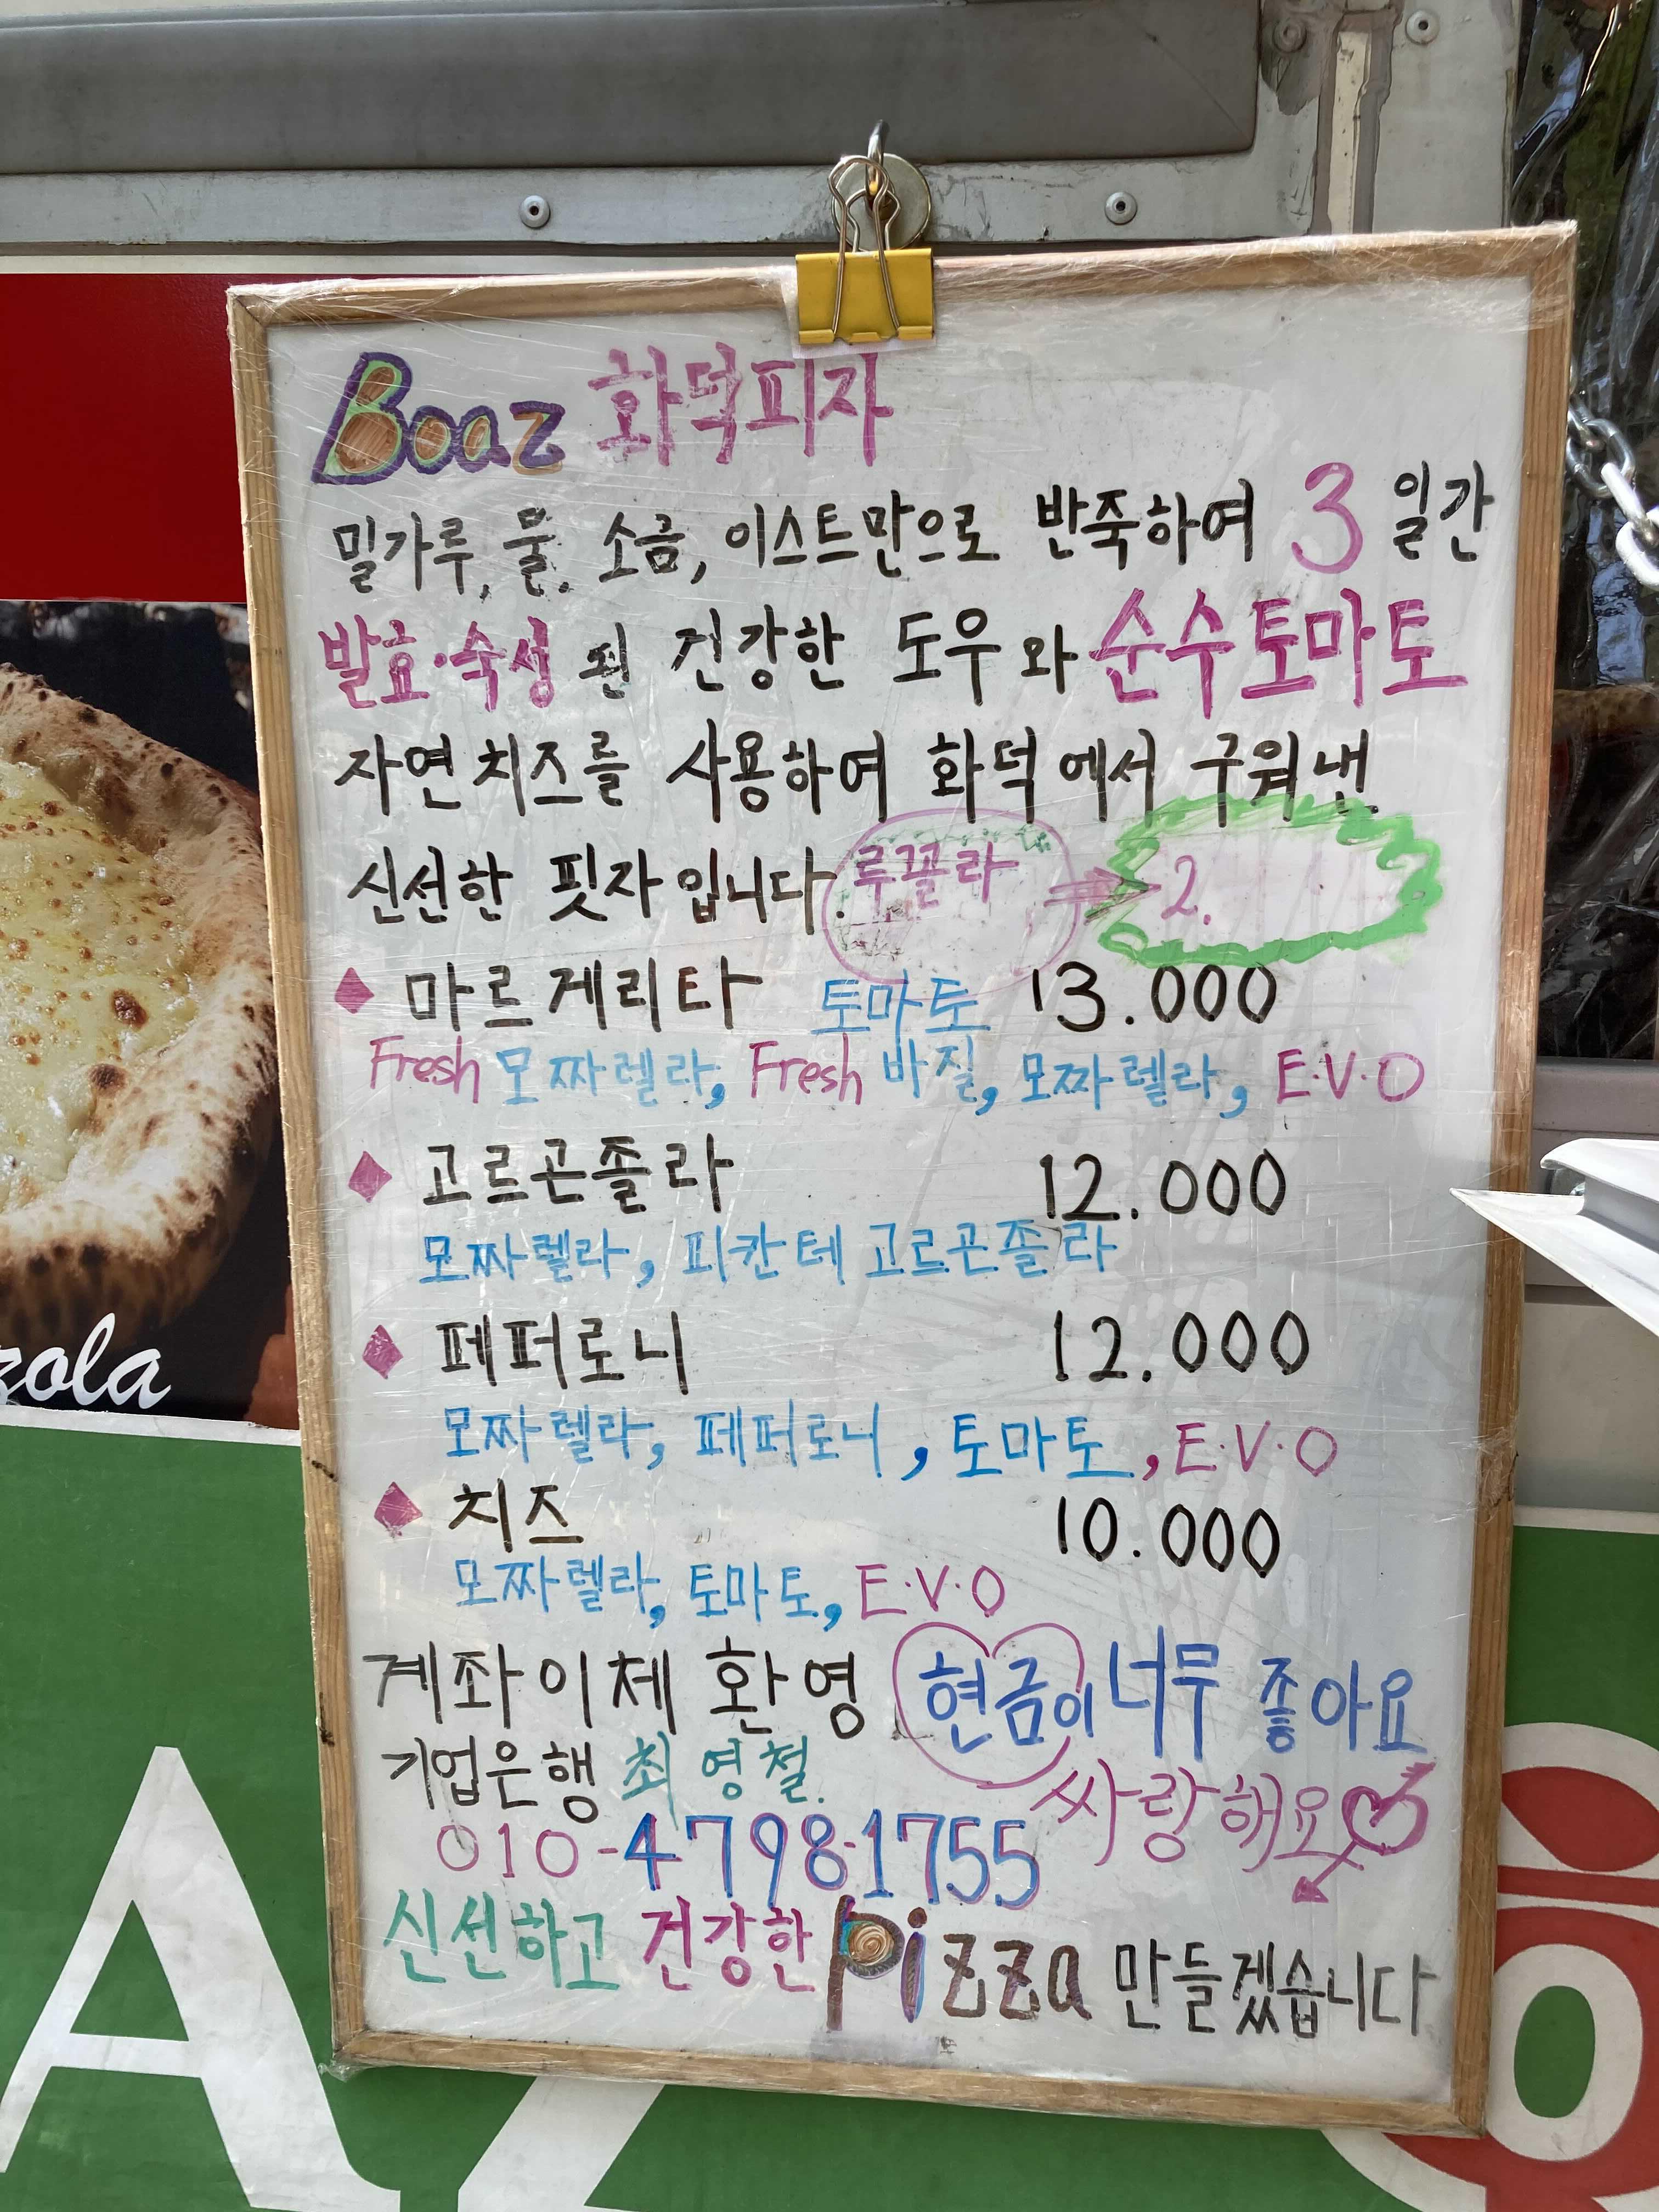 Boaz 화덕피자
밀가루, 물, 소금, 이스트만으로 반죽하여 3일간
발효·숙성 된 건강한 도우와 순수토마토
자연치즈를 사용하여 화덕에서 구워낸
신선한 핏자입니다. 루꼴라 → 2.
마르게리타 토마토 13.000
Fresh 모짜렐라, Fresh 바질, 모짜렐라, E.V.O
고르곤졸라 12.000
모짜렐라, 피칸테 고르곤졸라
페퍼로니 12.000
모짜렐라, 페퍼로니, 토마토, E.V.O
치즈 10.000
모짜렐라, 토마토, E.V.O
계좌이체 환영 현금이 너무 좋아요
기업은행 최영철. 싸랑해요
010-4798-1755
신선하고 건강한 Pizza 만들겠습니다
zola
AZ